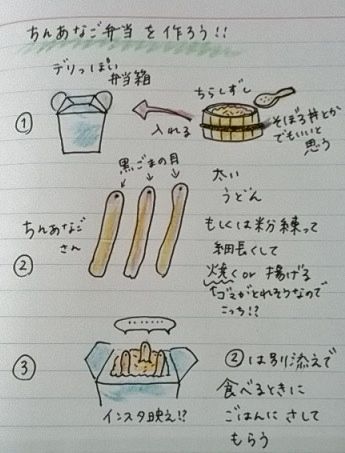 ちんあなご弁当を作ろう!!
デリっぽい
弁当箱
ちらしずし
①
入れる
そぼろ丼とか
でもいいと
思う
黒ごまの目
ちんあなご
さん
②
太い
うどん
もしくは米分練って
細長くして
焼く or 揚げる
ゴマがとれそうなので
こっち!?
③
インスタ映え!?
②は別添えで
食べるときに
ごはんにさして
もらう